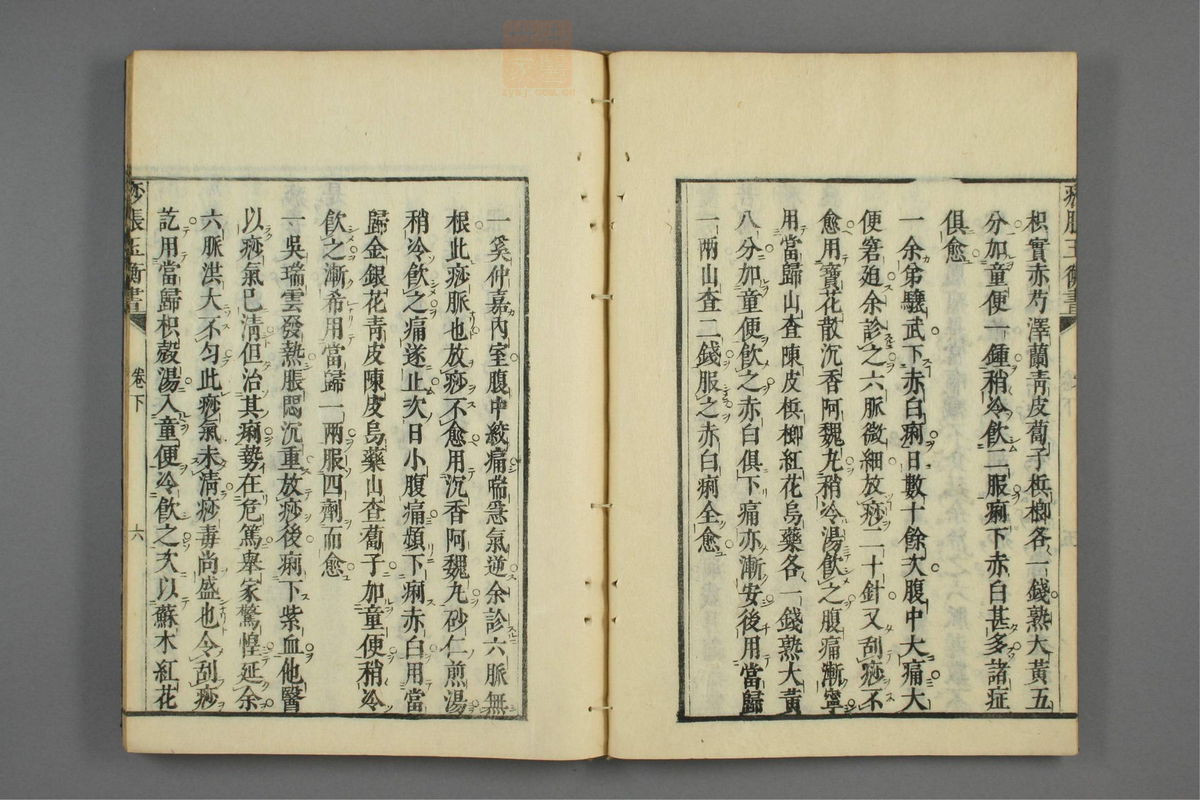 枳實赤芍澤蘭青皮蔔子梹榔各一錢熟大黃五
分加童便一鍾稍冷飲二服痢下赤白甚多諸症
俱愈
一余弟驥武下赤白痢日數十餘次腹中大痛大
便窘廹余診之六脈微細放痧二十針又刮痧不
愈用寶花散沉香阿魏丸稍冷湯飲之腹痛漸寧
用當歸山査陳皮梹榔紅花烏藥各一錢熟大黃
八分加童便飲之赤白俱下痛亦漸安後用當歸
一兩山査二錢服之赤白痢全愈
痧脹玉衡書
一奚仲嘉內室腹中絞痛喘急氣逆余診六脈無
根此痧脈也放痧不愈用沉香阿魏丸砂仁煎湯
稍冷飲之痛遂止次日小腹痛頻下痢赤白用當
歸金銀花青皮陳皮烏藥山査蔔子加童便稍冷
飲之漸希用當歸一兩服四劑而愈
一吳瑞雲發熱脹悶沉重放痧後痢下紫血他醫
以痧氣已清但治其痢勢在危篤舉家驚惶延余
六脈洪大不勻此痧氣未清痧毒尚盛也令刮痧
訖用當歸枳殼湯入童便冷飲之次以蘇木紅花
痧脹玉衡書 卷下 六